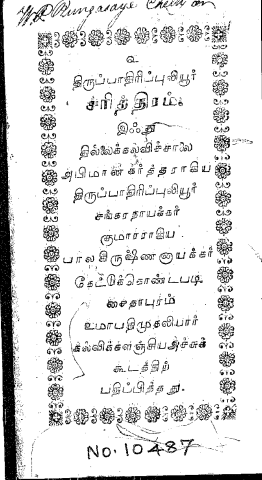 உ
திருப்பாதிரிப்புலியூர்
சரித்திரம்.
இஃது
தில்லைக்கல்விச்சாலை
அபிமான கர்த்தராகிய
திருப்பாதிரிப்புலியூர்
சங்கரநாயக்கர்
குமாரராகிய
பாலகிருஷ்ணனாயக்கர்
கேட்டுக்கொண்டபடி
சைதாபுரம்
உமாபதிமுதலியார்
கல்விக்களஞ்சியஅச்சுக்
கூடத்திற்
பதிப்பித்தது.
No. 10487